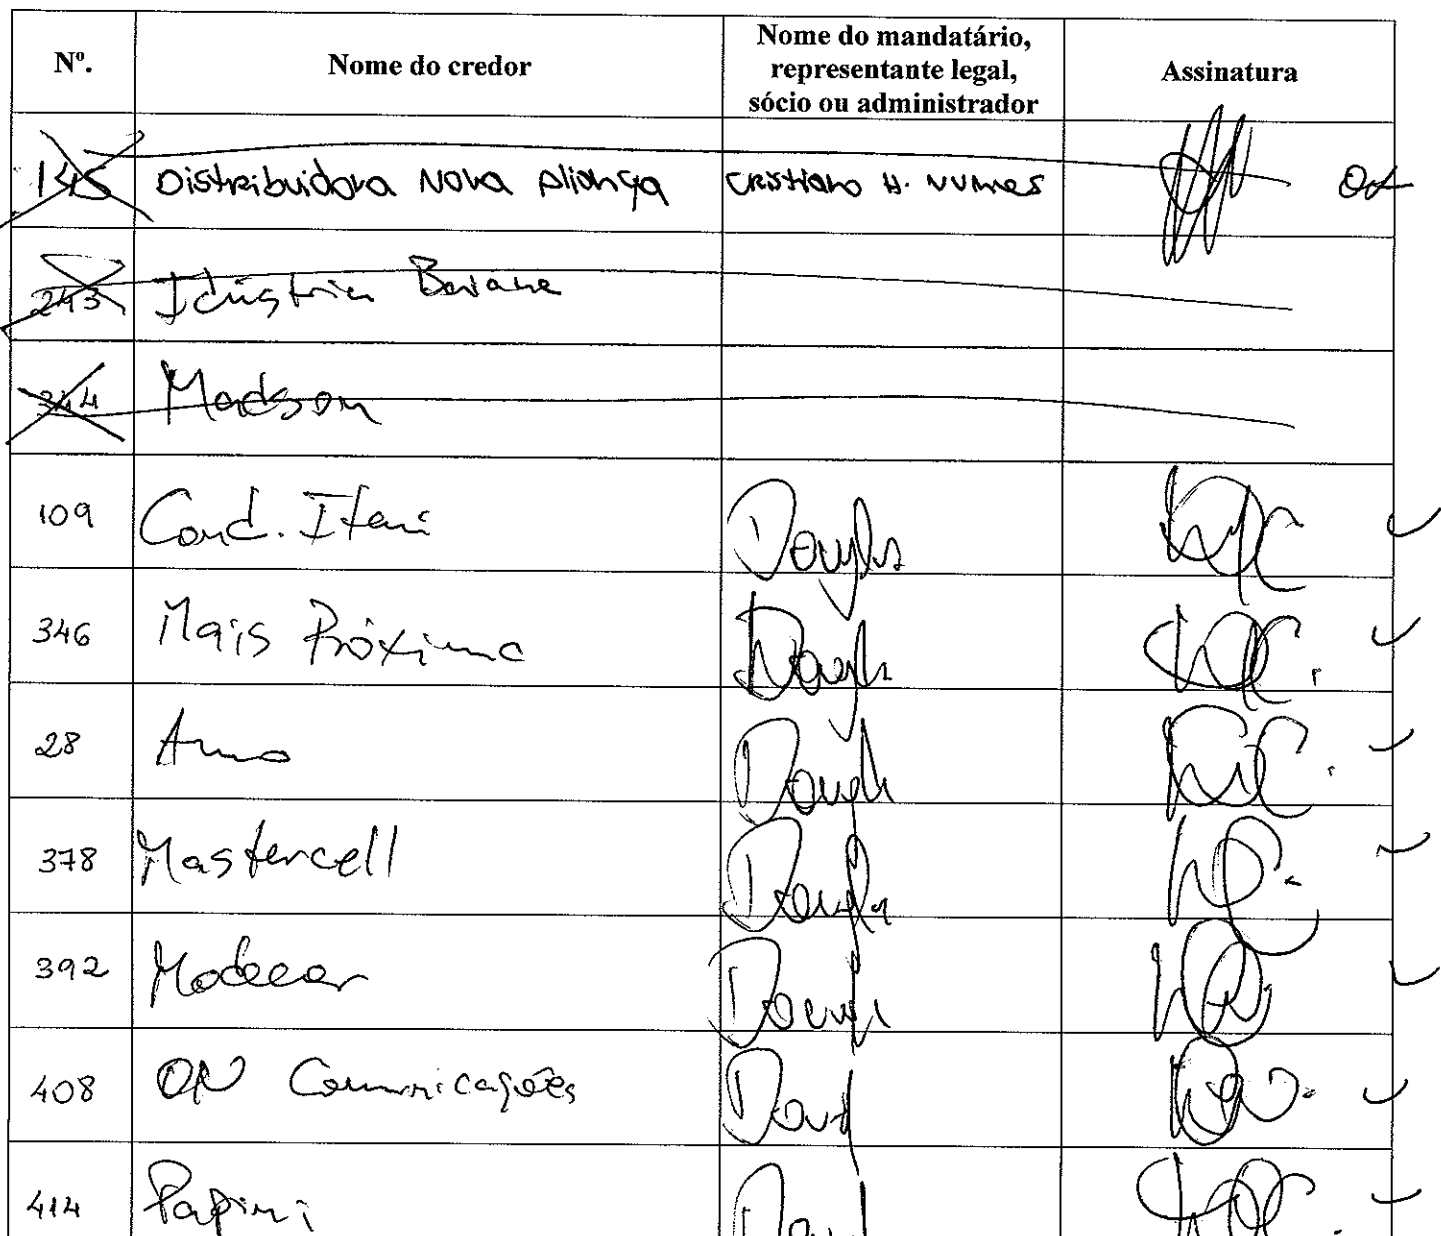 Nº. Nome do credor Nome do mandatário, representante legal, sócio ou administrador Assinatura
145 Distribuidora Nova Aliança Cristiano H. Nunes
243 Idústria Baiana
344 Madson
109 Cond. Itani Douglas
346 Mais Próxima Dougls
28 Arno Dougls
378 Mastercell Dougls
392 Modecor Dougls
408 ON Comunicações
414 Papini